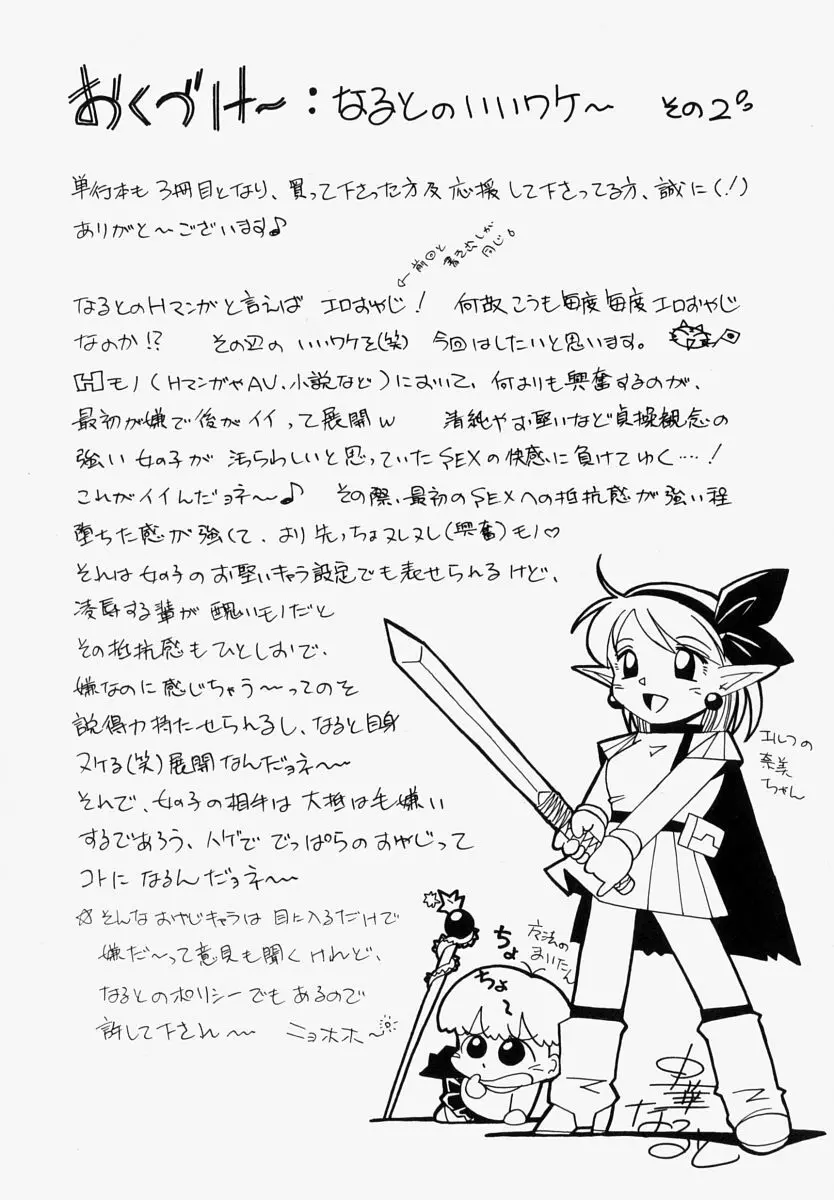 おくづけ〜：なるとのいいワケ〜 その2
単行本も3冊目となり、買って下さった方及応援して下さってる方、誠に(!)
ありがと〜ございます♪
←前回と
書き出しが
同じ。
なるとのHマンガと言えば エロおやじ！ 何故こうも毎度毎度エロおやじ
なのか!? その辺の いいワケを(笑) 今回はしたいと思います。
Hモノ（HマンガやAV、小説など）において、何よりも興奮するのが、
最初が嫌で後がイイって展開w 清純やお堅いなど貞操観念の
強い女の子が 汚らわしいと思っていたSEXの快感に負けてゆく…！
これがイイんだョネ〜♪ その際、最初のSEXへの抵抗感が強い程
堕ちた感が強くて、より先っちょヌレヌレ(興奮)モノ♡
それは女の子のお堅いキャラ設定でも表せられるけど、
凌辱する輩が醜いモノだと
その抵抗感もひとしおで、
嫌なのに感じちゃう〜ってのを
説得力持たせられるし、なると自身
ヌケる(笑)展開なんだョネ〜
それで、女の子の相手は大抵は毛嫌い
するであろう、ハゲででっぱらのおやじって
コトになるんだョネ〜
☆そんなおやじキャラは目に入るだけで
嫌だ〜って意見も聞くけれど、
なるとのポリシーでもあるので
許して下され〜 ニョホホ〜
エルフの
奈美
ちゃん
ちょ
ちょ〜
魔法の
まいたん
中華
なると